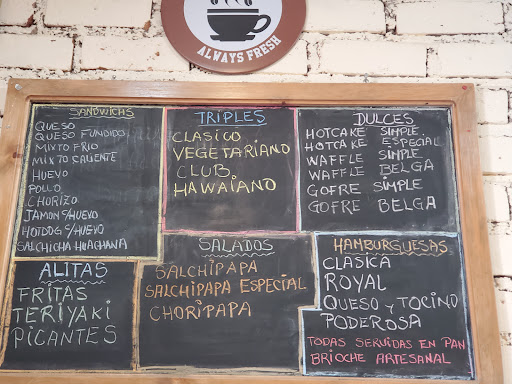 ALWAYS FRESH
SANDWICHS
QUESO
QUESO FUNDIDO
MIXTO FRIO
MIXTO CALIENTE
HUEVO
POLLO
CHORIZO
JAMON C/HUEVO
HOTDOG C/HUEVO
SALCHICHA HUACHANA
TRIPLES
CLASICO
VEGETARIANO
CLUB
HAWAIANO
DULCES
HOTCAKE SIMPLE
HOTCAKE ESPECIAL
WAFFLE SIMPLE
WAFFLE BELGA
GOFRE SIMPLE
GOFRE BELGA
ALITAS
FRITAS
TERIYAKI
PICANTES
SALADOS
SALCHIPAPA
SALCHIPAPA ESPECIAL
CHORIPAPA
HAMBURGUESAS
CLASICA
ROYAL
QUESO y TOCINO
PODEROSA
TODAS SERVIDAS EN PAN
BRIOCHE ARTESANAL